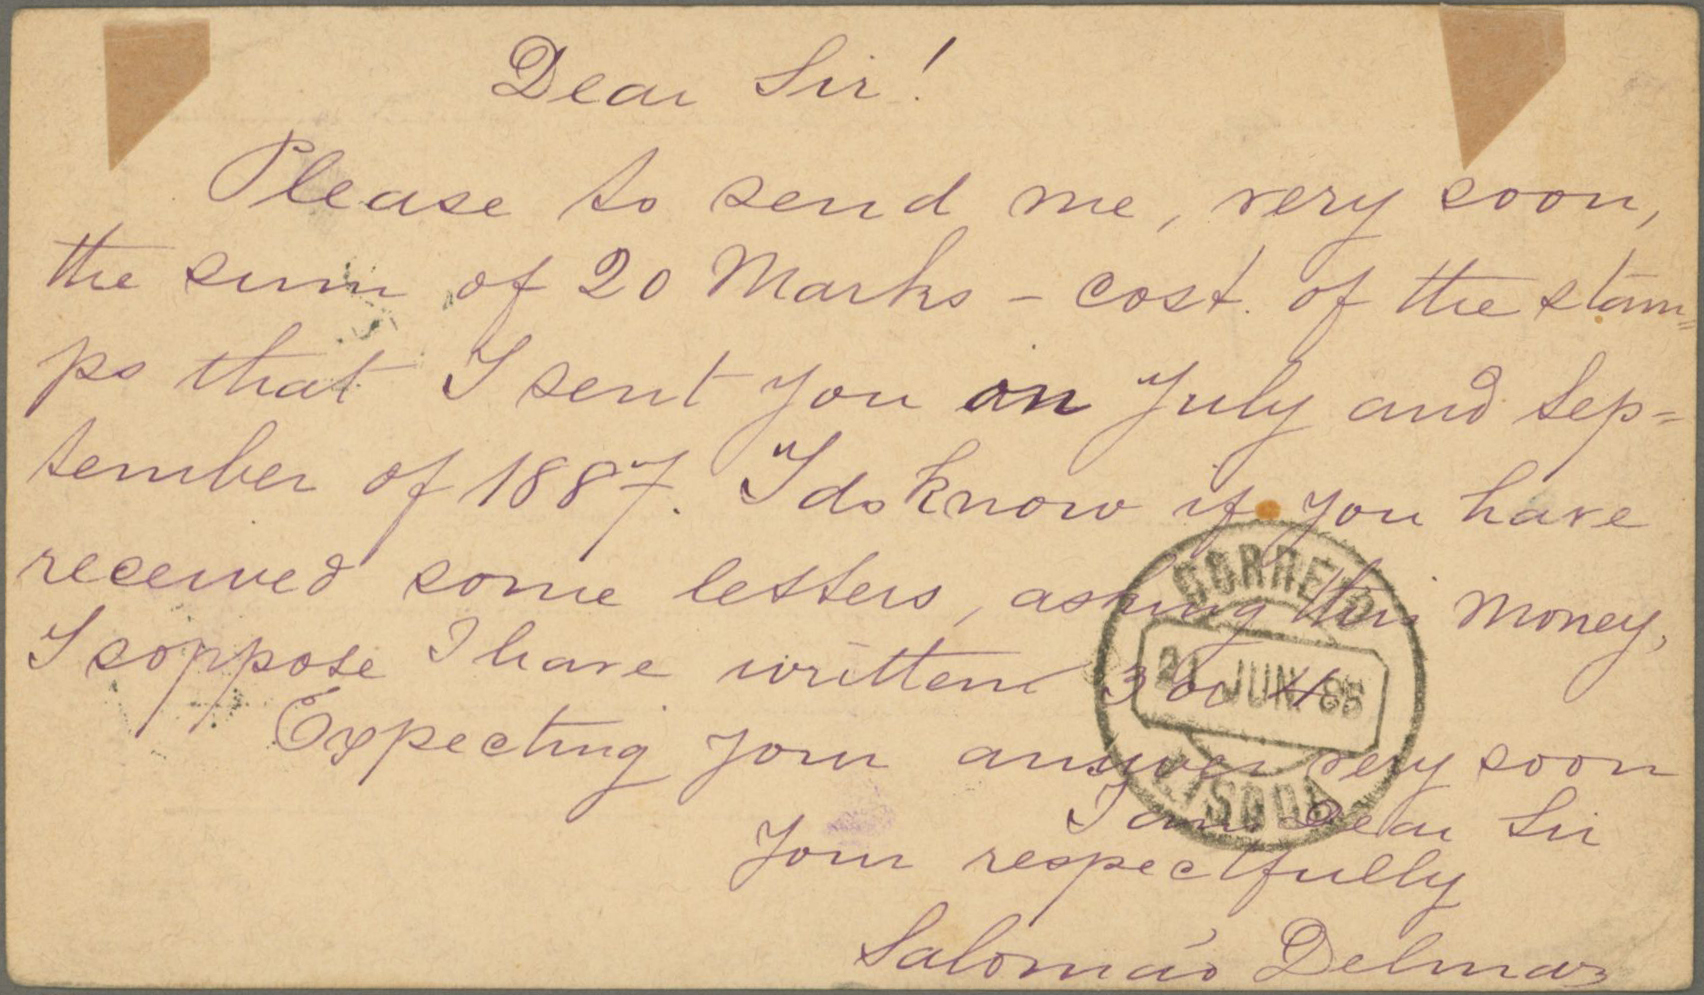 Dear Sir!
Please to send me, very soon,
the sum of 20 Marks - cost of the stam=
ps that I sent you on July and Sep=
tember of 1887. I do know if you have
received some letters, asking this money,
I soppose I have written 3 oo 4.
Expecting your answer very soon
I am Dear Sir
Your respectfully
Salomão Delmar
CORREIO
21 JUN 88
LISBOA